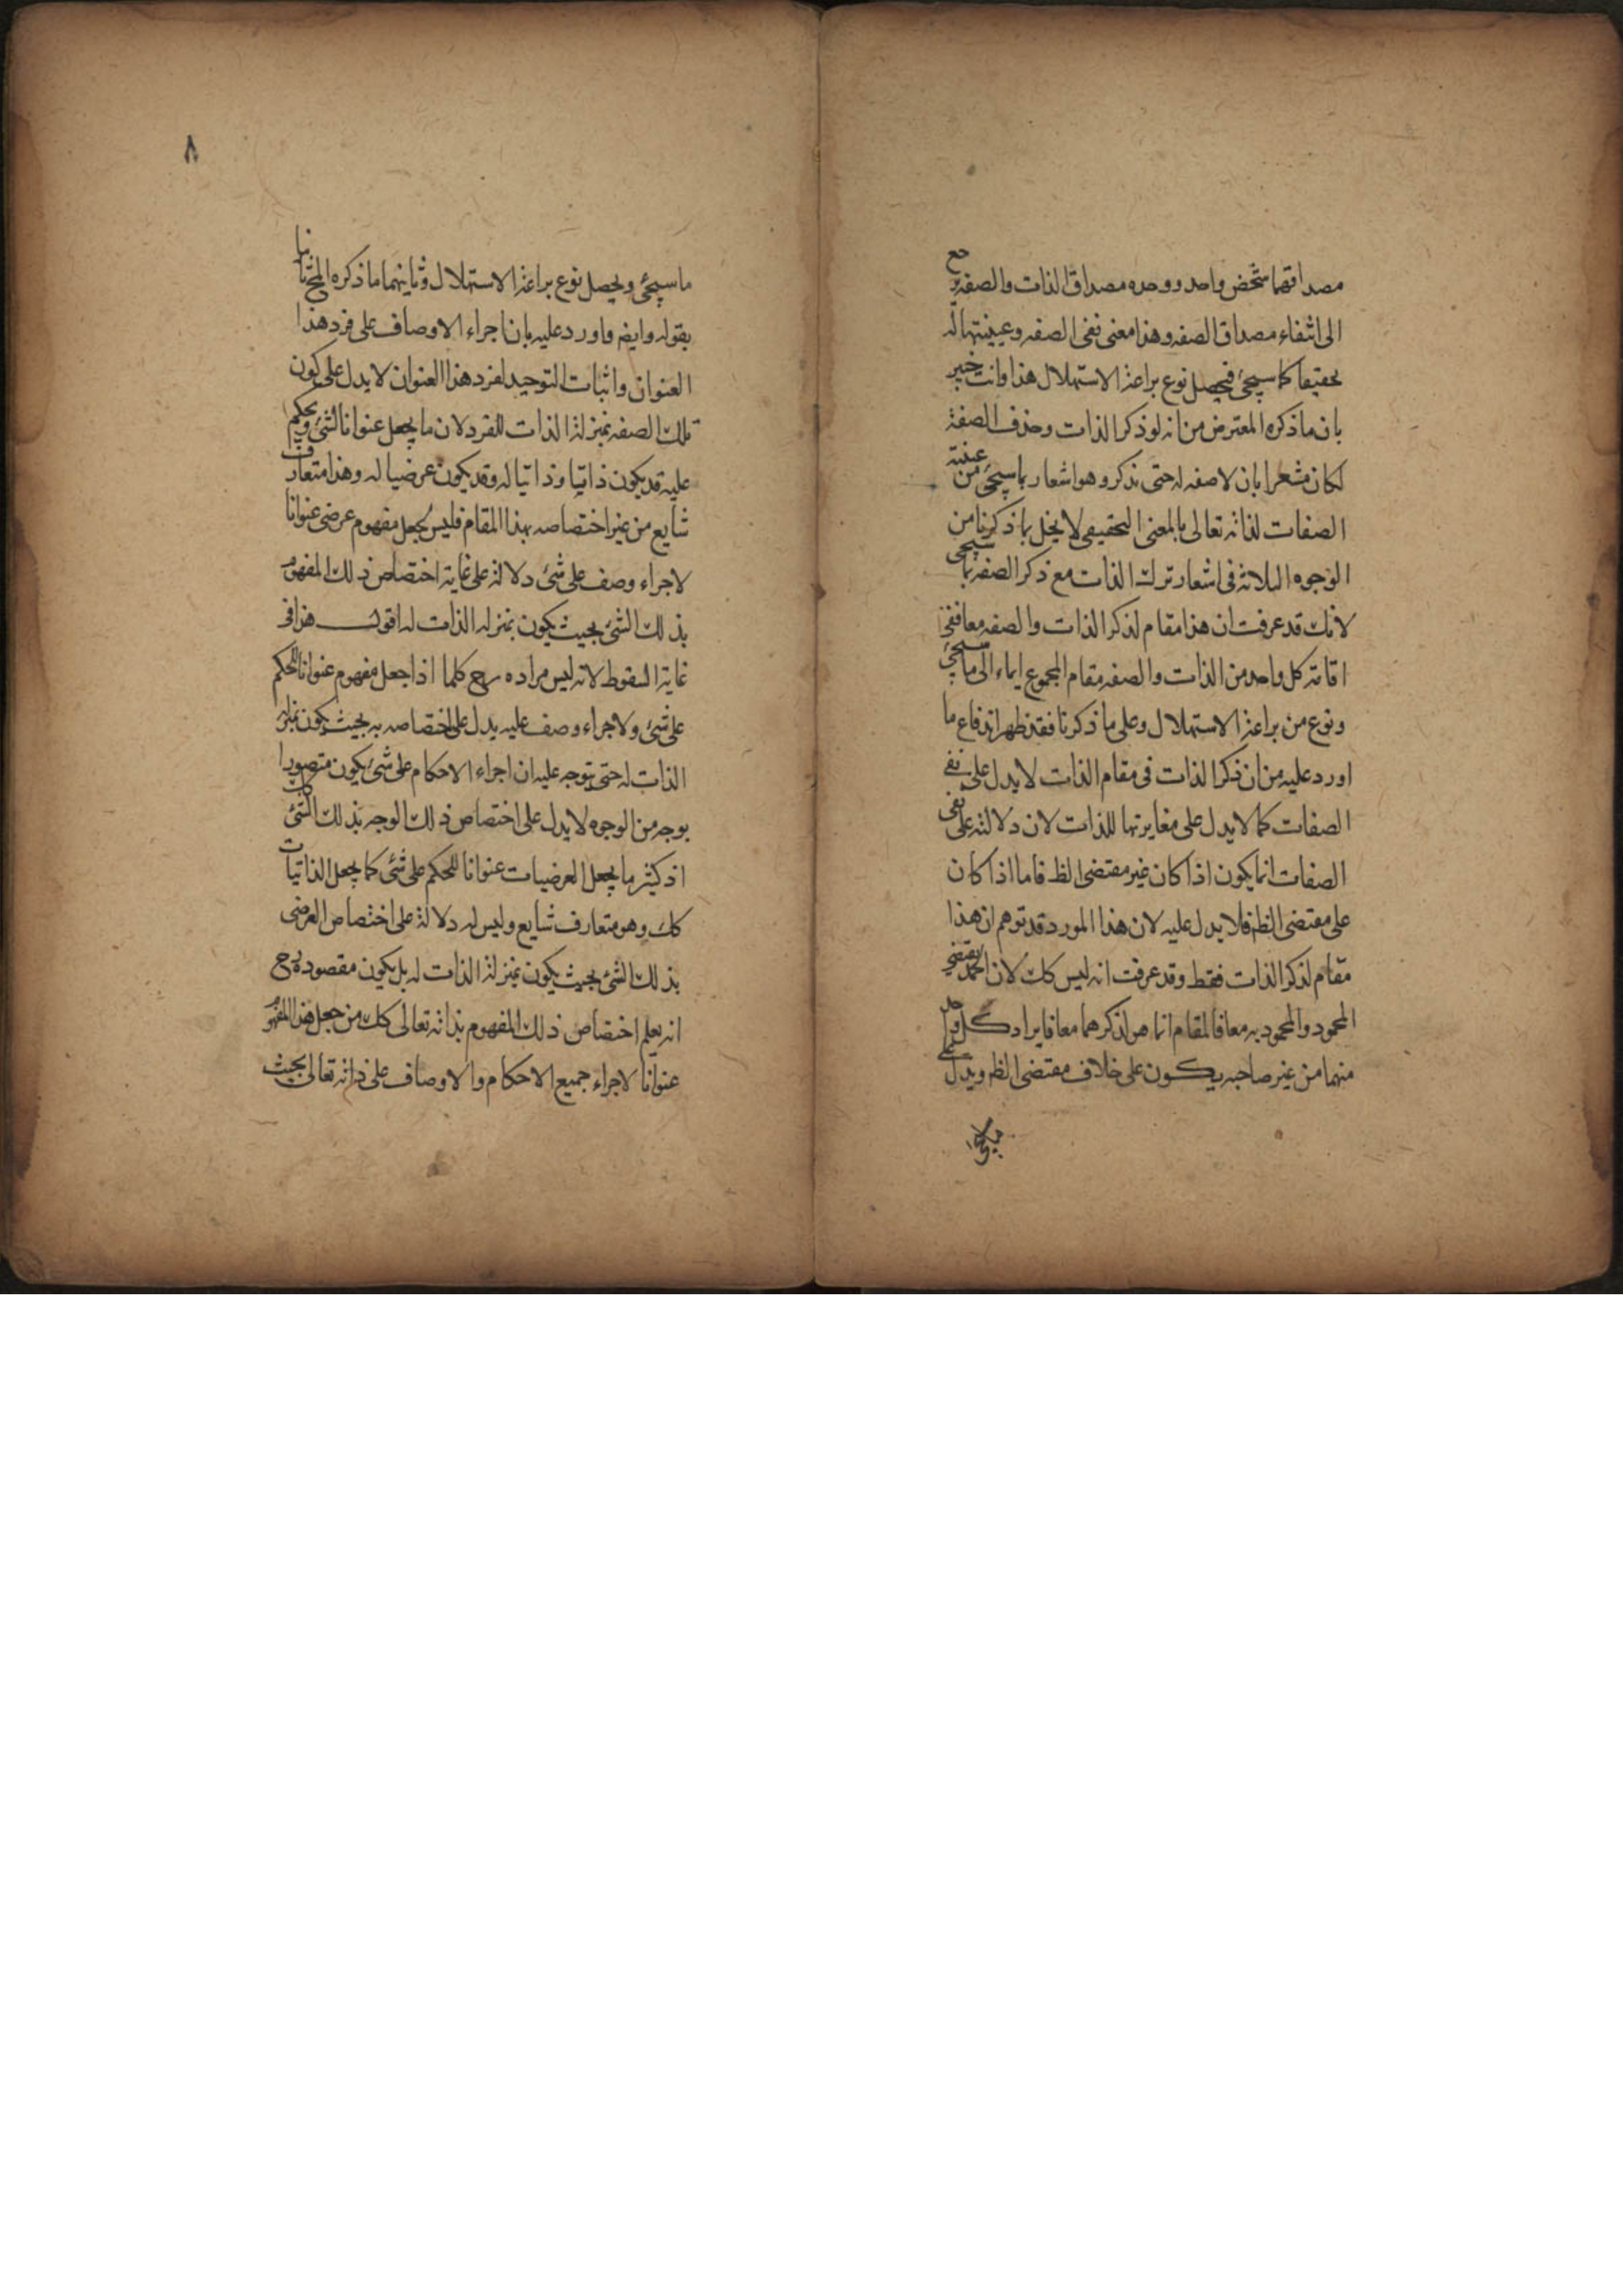 مصداقهما شخص واحد ووحده مصداق الذات والصفه يرجع
الى انتفاء مصداق الصفه وهذا معنى نفى الصفه وعينيتها له
تحقيقا كما سيجئ فيحصل نوع براعة الاستهلال هذا وانت خبير
بان ما ذكره المعترض من انه لو ذكر الذات وحذف الصفة
لكان مشعرا بان لا صفه له حتى تذكر وهو اشعار بما سيجئ من عينية
الصفات لذاته تعالى بالمعنى التحقيقى لا يخل بما ذكرنا من
الوجوه الثلاثة فى اشعار ترك الذات مع ذكر الصفه بما سيجئ
لانك قد عرفت ان هذا مقام لذكر الذات والصفه معا ففى
اقامة كل واحد من الذات والصفه مقام المجموع ايماء الى ما سيجئ
ونوع من براعة الاستهلال وعلى ما ذكرنا فقد ظهر اندفاع ما
اورد عليه من ان ذكر الذات فى مقام الذات لا يدل على نفى
الصفات كما لا يدل على مغايرتها للذات لان دلالته على نفى
الصفات انما يكون اذا كان غير مقتضى الظ فاما اذا كان
على مقتضى الظ فلا يدل عليه لان هذا المورد قد توهم ان هذا
مقام لذكر الذات فقط وقد عرفت انه ليس كك لان الحمد يقتضى
المحمود والمحمود به معا فالمقام انما هو لذكرهما معا فايراد كل واحد
منهما من غير صاحبه يكون على خلاف مقتضى الظ ويدل على
ما سيجئ ويحصل نوع براعة الاستهلال وثانيهما ما ذكره المح ثانيا
بقوله وايضا واورد عليه بان اجراء الاوصاف على فرد هذا
العنوان واثبات التوحيد لفرد هذا العنوان لا يدل على كون
تلك الصفه بمنزلة الذات للفرد لان ما يجعل عنوانا لشئ ويحكم
عليه قد يكون ذاتيا وذاتيا له وقد يكون عرضيا له وهذا متعارف
شايع من غير اختصاصه بهذا المقام فليس يجعل مفهوم عرضى عنوانا
لاجراء وصف على شئ دلالة على غاية اختصاص ذلك المفهوم
بذلك الشئ بحيث يكون بمنزله الذات له اقول هذا فى
غاية السقوط لانه ليس مراده رح كلما اذا جعل مفهوم عنوانا للحكم
على شئ ولاجراء وصف عليه يدل على اختصاصه به بحيث يكون بمنزلة
الذات له حتى يتوجه عليه ان اجراء الاحكام على شئ يكون متصورا
بوجه من الوجوه لا يدل على اختصاص ذلك الوجه بذلك الشئ كك
اذ كثير ما يجعل العرضيات عنوانا للحكم على شئ كما يجعل الذاتيات
كك وهو متعارف شايع وليس له دلالة على اختصاص العرضى
بذلك الشئ بحيث يكون بمنزلة الذات له بل يكون مقصوده رح
انه يعلم اختصاص ذلك المفهوم بذاته تعالى كك من جعل هذا المفهوم
عنوانا لاجراء جميع الاحكام والاوصاف على ذاته تعالى بحيث
٨